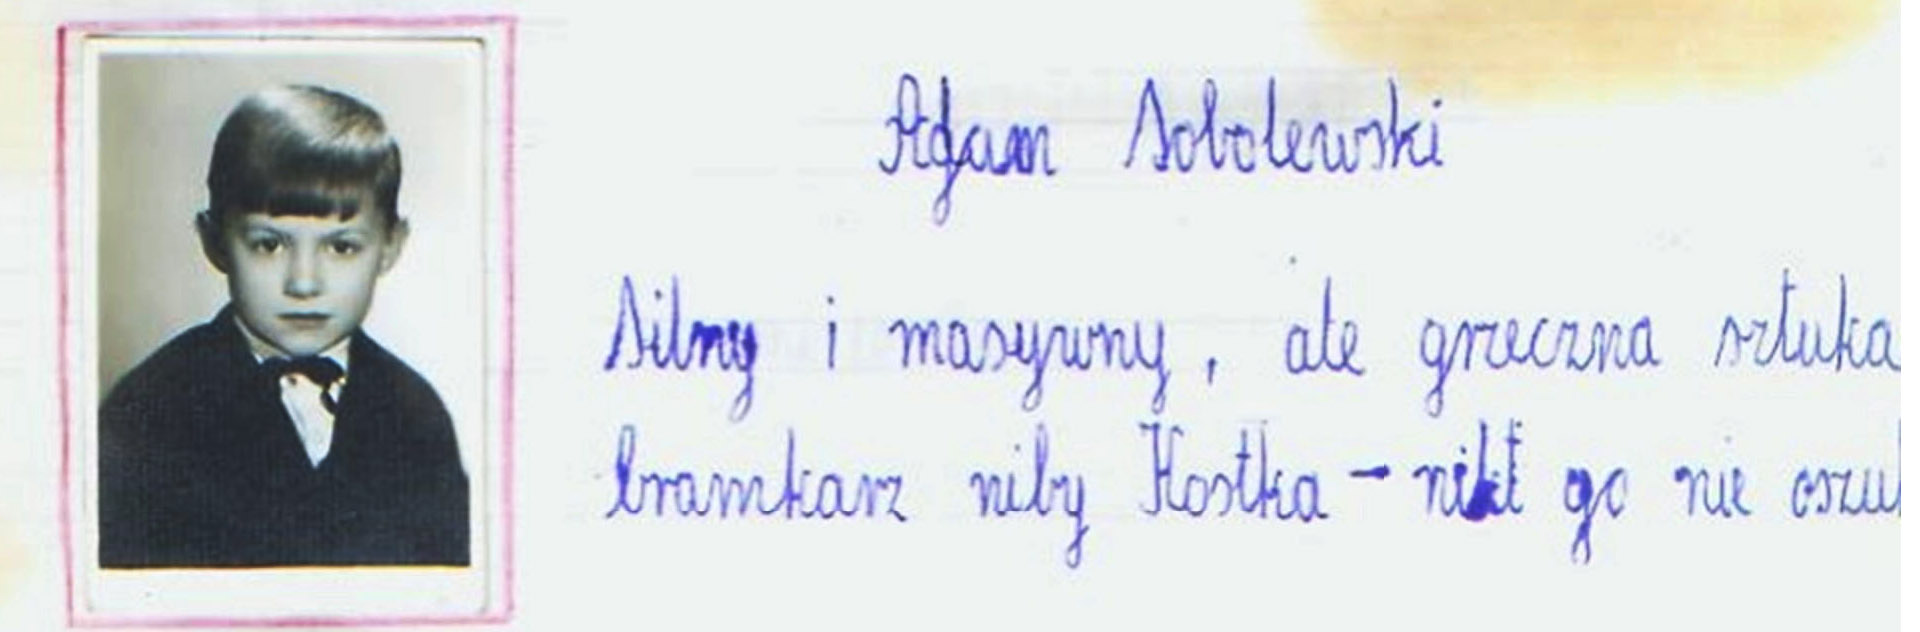 Adam Sobolewski
Silny i masywny, ale grzeczna sztuka
bramkarz niby Kostka - nikt go nie